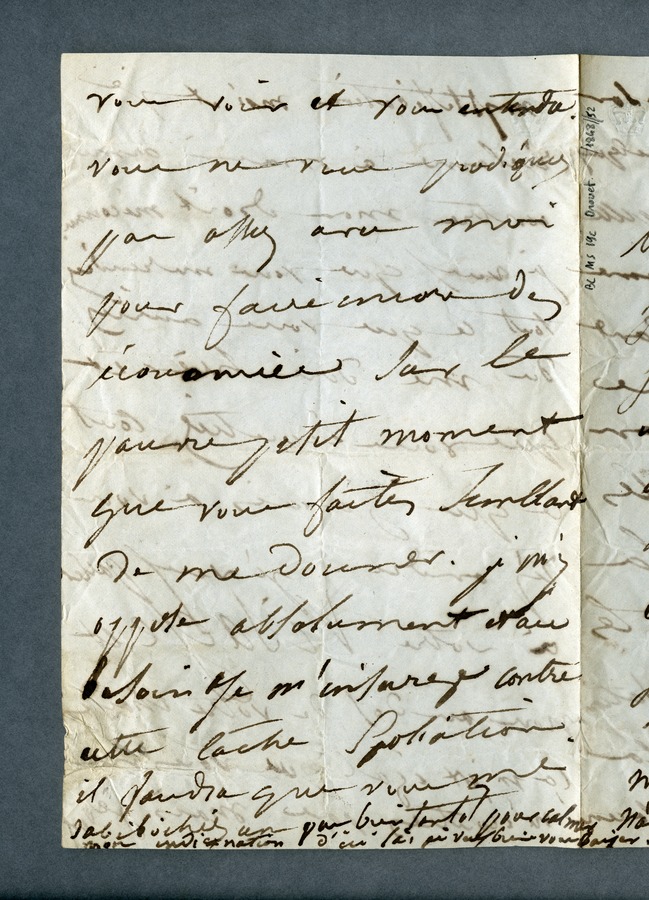 vous voir et vous entendre.
vous ne vous prodiguez
pas assez avec moi
pour faire encore des
économies sur le
pauvre petit moment
que vous faites semblant
De me donner. je m'y
oppose absolument et au
besoin je m'insurge contre
cette lâche spoliation.
il faudra que vous me
un peu bien tantôt pour calmer
mon indignation d'ici là je veux bien vous baiser.
BC MS 19c Drouet /1848/52